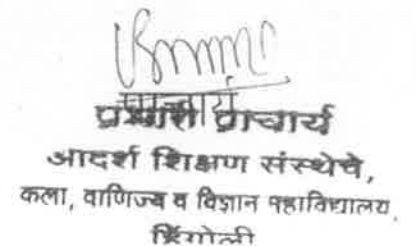 प्राचार्य
प्रभारी प्राचार्य
आदर्श शिक्षण संस्थेचे,
कला, वाणिज्य व विज्ञान महाविद्यालय,
हिंगोली